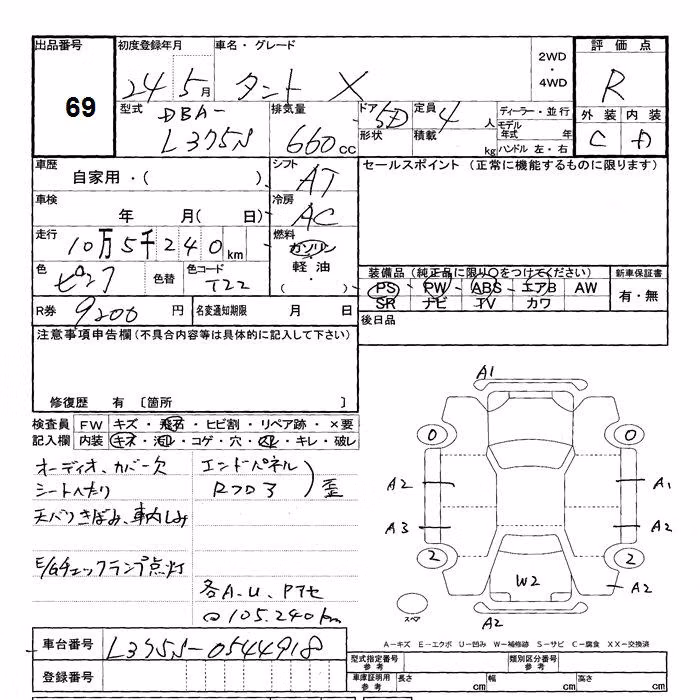 出品番号 初度登録年月 車名・グレード 2WD・4WD 評価点
69 24 5月 タント X R
型式 DBA-L375S 排気量 660cc ドア 5D 形状 定員 4人 積載 kg ディーラー・並行 モデル年式 年 ハンドル 左・右 外装 C 内装 D
車歴 自家用・( ) シフト AT セールスポイント (正常に機能するものに限ります)
車検 年 月( 日) 冷房 AC
走行 10万5千240km 燃料 ガソリン・軽油・( )
色 ピンク 色替 色コード T22 装備品 (純正品に限り○をつけてください) 新車保証書
PS PW ABS エアB AW 有・無
SR ナビ TV カワ
R券 9200円 名変通知期限 月 日 後日品
注意事項申告欄(不具合内容等は具体的に記入して下さい)
修復歴 有 〔箇所 〕
検査員記入欄 FW キズ・飛石・ヒビ割・リペア跡・×要
内装 キズ・汚れ・コゲ・穴・スレ・キレ・破レ
オーディオ、カバー欠 エンドパネル
シートへたり Rフロア 歪
天バリきばみ、車内しみ
E/Gチェックランプ点灯
各A.U.Pアセ
@105.240km
A1
0 0
A2 A1
A3 A2
2 2
W2 A2
スペア A2
A-キズ E-エクボ U-凹み W-補修跡 S-サビ C-腐食 XX-交換済
車台番号 L375S-0544918 型式指定番号 参考 類別区分番号 参考
登録番号 車庫証明用 参考 長さ cm 幅 cm 高さ cm